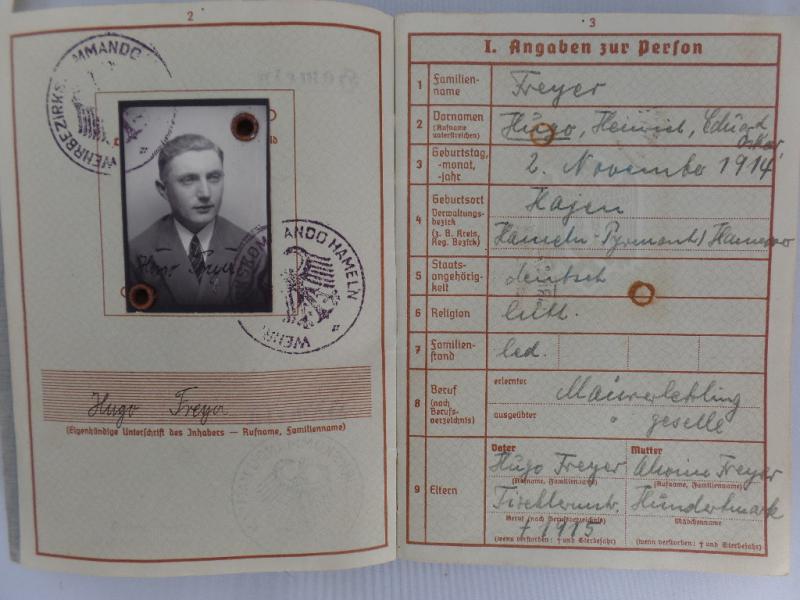 2
WEHRBEZIRKSKOMMANDO
WEHRBEZIRKSKOMMANDO HAMELN
Hugo Freyer
Hugo Freyer
(Eigenhändige Unterschrift des Inhabers — Rufname, Familienname)
3
I. Angaben zur Person
1 Familien-
name
Freyer
2 Vornamen
(Rufname
unterstreichen)
Hugo, Heinrich, Eduard
Oskar
3 Geburtstag,
-monat,
-jahr
2. November 1914
4 Geburtsort
Verwaltungs-
bezirk
(z. B. Kreis,
Reg. Bezirk)
Hajen
Hameln-Pyrmont/Hannover
5 Staats-
angehörig-
keit
deutsch
6 Religion
luth.
7 Familien-
stand
led.
8 Beruf
(nach
Berufs-
verzeichnis)
erlernter
Maurerlehrling
ausgeübter
" geselle
9 Eltern
Vater
Mutter
Hugo Freyer
Alwine Freyer
(Rufname, Familienname)
(Rufname, Familienname)
Tischlermstr.
Hundertmark
Beruf (nach Berufsverzeichnis)
Mädchenname
† 1915
(wenn verstorben: † und Sterbejahr)
(wenn verstorben: † und Sterbejahr)